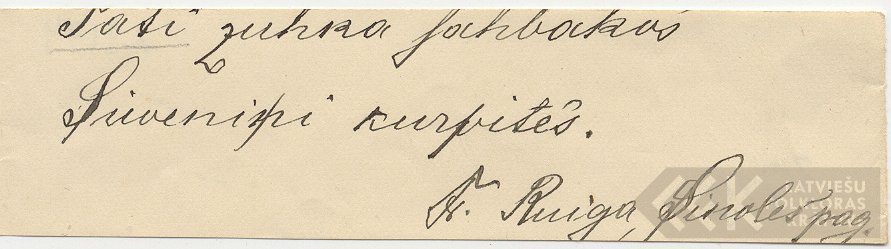 Pati zuhka sahbakos
Siweniņi kurpitēs.
Ruiga, Sinoles pag.
LATVIEŠU
FOLKLORAS